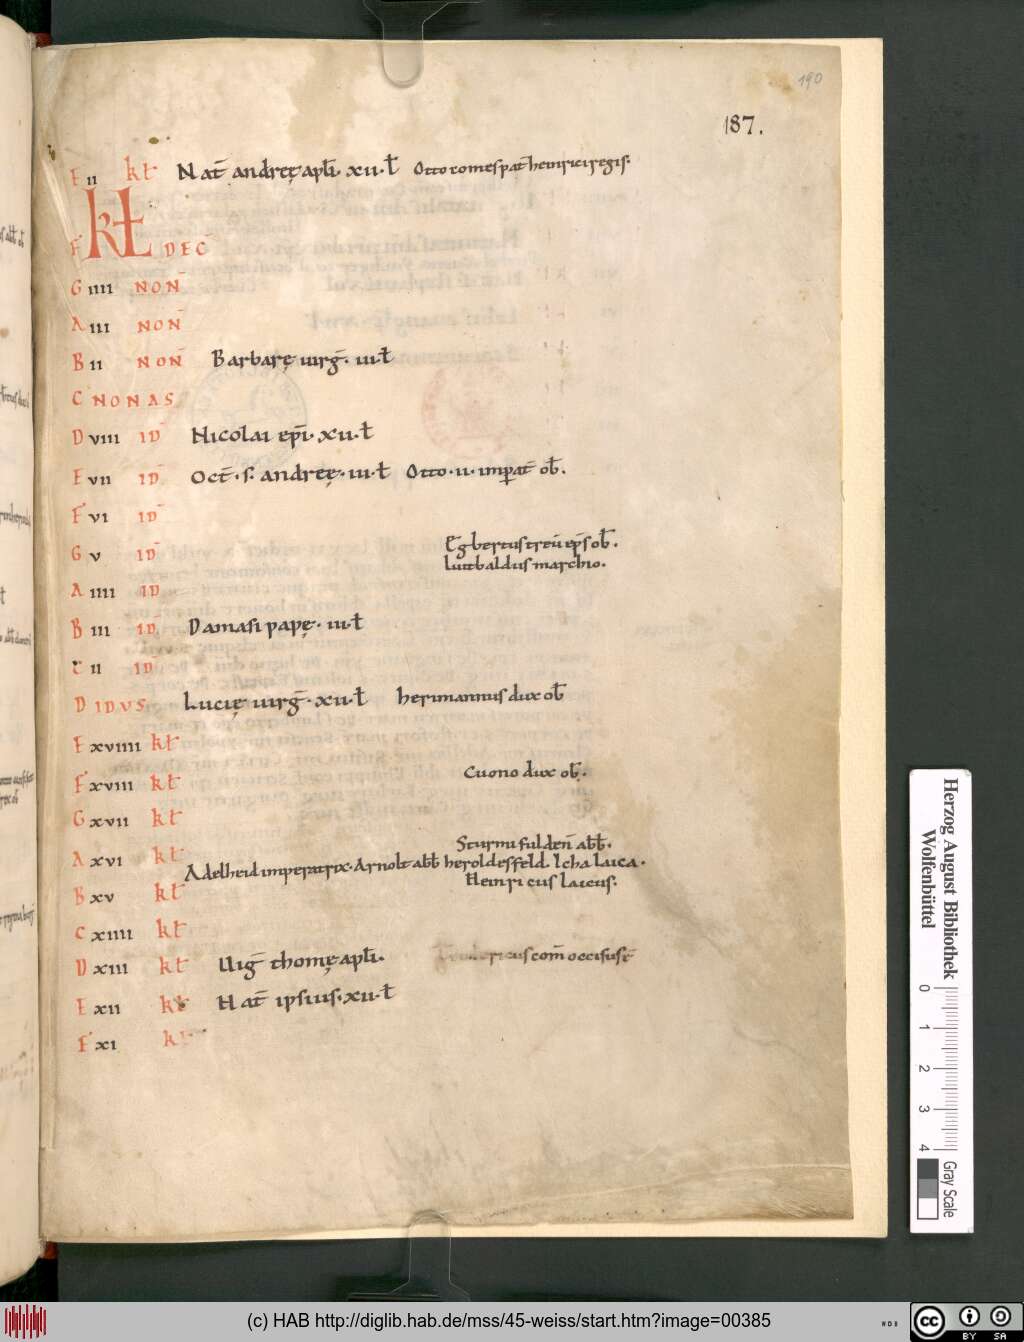 190
187.
E II kł Nat̄ andreę apłi. xii. ł Otto comes pat̄ heinrici regis.
F kł DEC̄
G IIII NON̄
A III NON̄
B II NON̄ Barbarę uirḡ. iii. ł
C NONAS
D VIII ID̄ Nicolai ep̄i. xii. ł
E VII ID̄ Oct̄. s. andreę. iii. ł Otto. ii. imperat̄ ob̄.
F VI ID̄
G V ID̄ Egbertus treū ep̄s ob̄.
luitbaldus marchio.
A IIII ID̄
B III ID̄ Damasi papę. iii. ł
C II ID̄
D IDVS Lucię uirḡ. xii. ł herimannus dux ob̄
E XVIIII kł
F XVIII kł Cuono dux ob̄.
G XVII kł
Sturmi fulden̄ abb̄.
A XVI kł Adelheid imperatrix. Arnolt abb̄ heroldesfeld. Icha Laica.
Heinricus laicus.
B XV kł
C XIIII kł
D XIII kł Uiḡ thomę apłi. com̄ occisus ē
E XII kł Nat̄ ipsius. xii. ł
F XI kł
Herzog August Bibliothek
Wolfenbüttel
0 1 2 3 4
Gray Scale
(c) HAB http://diglib.hab.de/mss/45-weiss/start.htm?image=00385
WDB
cc BY SA